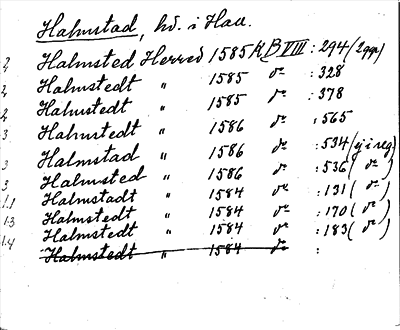 Halmstad, hd. i Hall.
2 Halmsted Herred 1585 K B VIII : 294 (2 ggr)
2 Halmstedt " 1585 do : 328
2 Halmstedt " 1585 do : 378
3 Halmstedt " 1586 do : 565
3 Halmstad " 1586 do : 534 (ej i reg)
3 Halmsted " 1586 do : 536 ( do )
1.1 Halmstadt " 1584 do : 131 ( do )
1.3 Halmstedt " 1584 do : 170 ( do )
1.4 Halmstedt " 1584 do : 183 ( do )
Halmstedt " 1584 do :